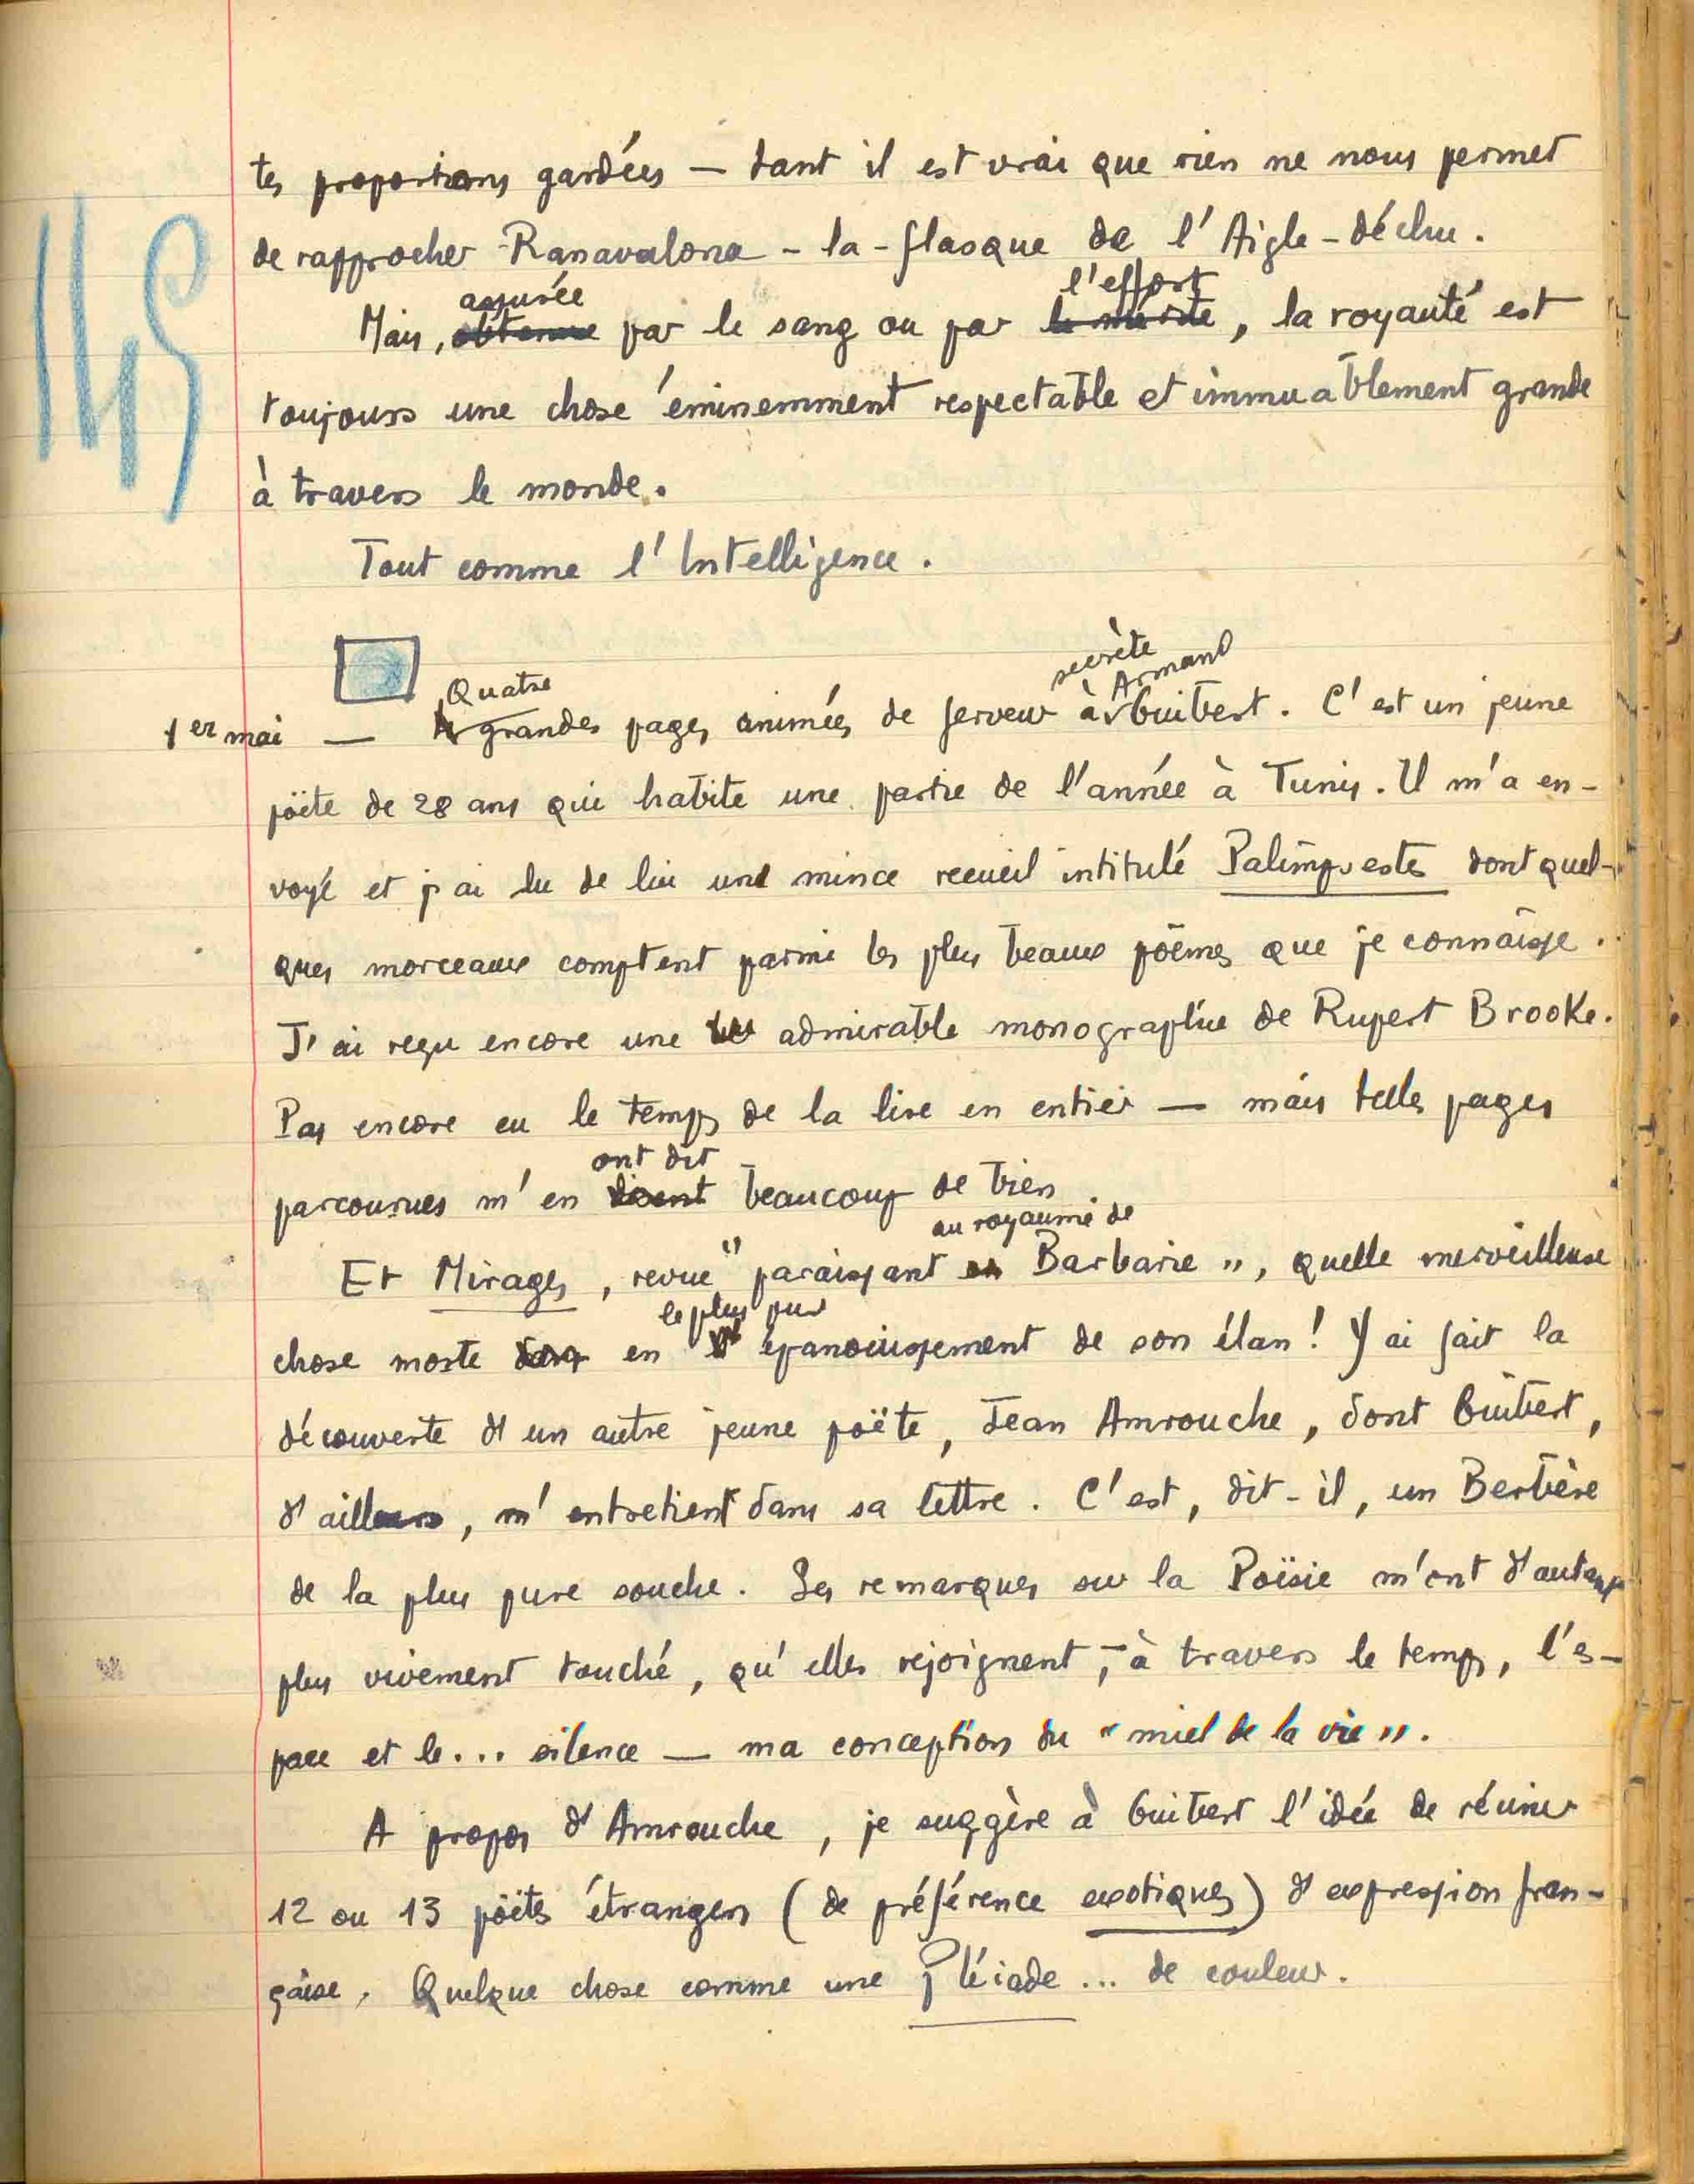 145
tes proportions gardées — tant il est vrai que rien ne nous permet
de rapprocher Ranavalona - la - flasque de l'Aigle - déchu.
assurée l'effort
Mais, obtenue par le sang ou par le mérite, la royauté est
toujours une chose éminemment respectable et immuablement grande
à travers le monde.
Tout comme l'Intelligence.
Quatre secrète Armand
1er mai — 4 grandes pages animées de ferveur à Guibert. C'est un jeune
poëte de 28 ans qui habite une partie de l'année à Tunis. Il m'a en-
voyé et j'ai lu de lui un mince recueil intitulé Palimpseste dont quel-
ques morceaux comptent parmi les plus beaux poëmes que je connaisse.
J'ai reçu encore une admirable monographie de Rupert Brooke.
Pas encore eu le temps de la lire en entier — mais telles pages
ont dit
parcourues m'en disent beaucoup de bien.
au royaume de
Et Mirages, revue "paraissant en Barbarie", quelle merveilleuse
le plus pur
chose morte dans en l'épanouissement de son élan ! J'ai fait la
découverte d'un autre jeune poëte, Jean Amrouche, dont Guibert,
d'ailleurs, m'entretient dans sa lettre. C'est, dit-il, un Berbère
de la plus pure souche. Ses remarques sur la Poësie m'ont d'autant
plus vivement touché, qu'elles rejoignent, — à travers le temps, l'es-
pace et le... silence — ma conception du "miel de la vie".
A propos d'Amrouche, je suggère à Guibert l'idée de réunir
12 ou 13 poëtes étrangers (de préférence exotiques) d'expression fran-
çaise. Quelque chose comme une Pléiade... de couleur.